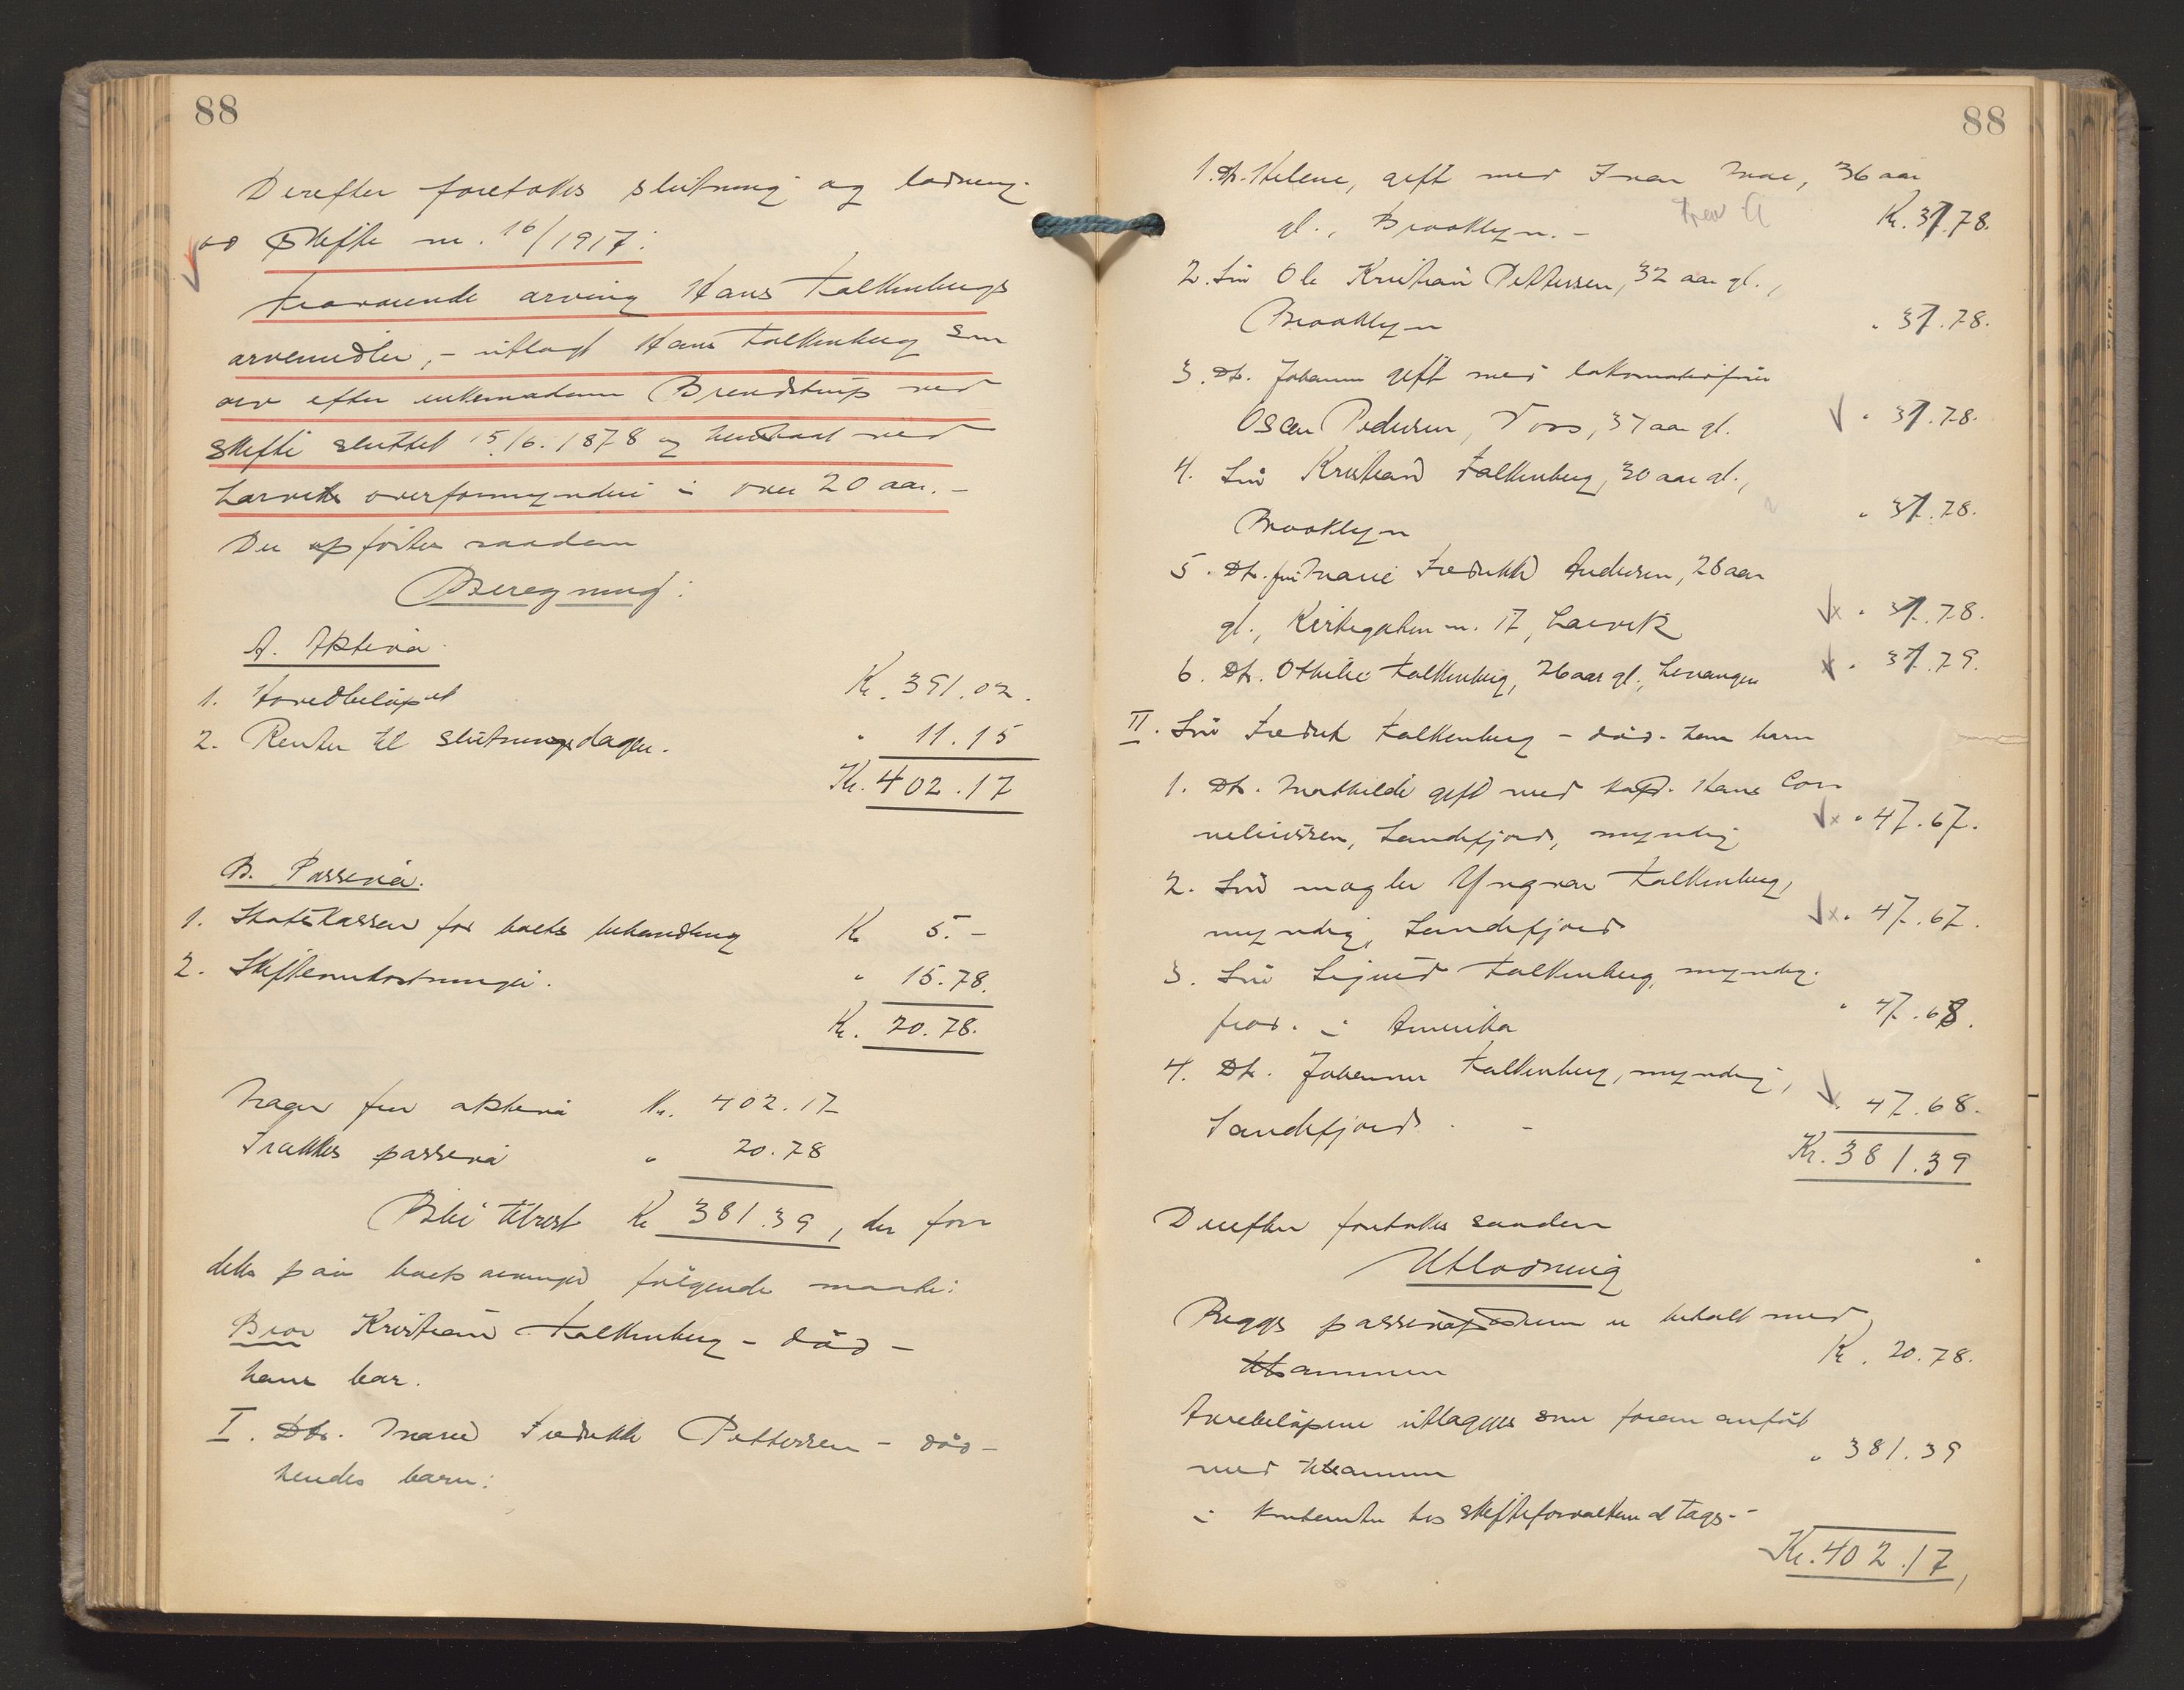 88
Derefter foretokes slutning og lodning
av Skifte nr. 16/1917:
Fraværende arving Hans Falkenbergs
arvemidler, - utlagt Hans Falkenberg som
arv efter enkemadam Brendstrup ved
skifte sluttet 15/6. 1878 og henstaat ved
Larviks overformynderi i over 20 aar. -
Der opførtes saadan
Beregning:
A. Aktiva.
1. Hovedbeløpet Kr. 391.02.
2. Renter til slutningsdagen. " 11.15
Kr. 402.17
B. Passiva.
1. Statskassen for boets behandling Kr 5.-
2. Skifteomkostninger. " 15.78.
Kr. 20.78.
Naar fra aktiva Kr. 402.17
Trækkes passiva " 20.78
Blir tilrest Kr 381.39, der for-
deles paa boets arvinger følgende maate:
Bror Kristian Falkenberg - død -
hans bar.
I. Dtr. Marie Fredrikke Pettersen - død -
hendes barn:
88
1. Dtr. Helene, gift med Iver Moe, 36 aar
gl., Brooklyn. - Kr. 31.78.
2. Søn Ole Kristian Pettersen, 32 aar gl.,
Brooklyn " 31.78.
3. Dtr. Johanne gift med lokomotivfører
Oscar Pedersen, Voss, 31 aar gl. " 31.78.
4. Søn Kristian Falkenberg, 30 aar gl.,
Brooklyn " 31.78.
5. Dtr. fru Marie Fredrikke Andersen, 28 aar
gl., Kirkegaten nr. 17, Larvik x " 31.78.
6. Dtr. Othilie Falkenberg, 26 aar gl., Levanger x " 31.79.
II. Søn Fredrik Falkenberg - død. Hans barn
1. Dtr. Mathilde gift med kapt. Hans Cor-
neliussen, Sandefjord, myndig x " 47.67.
2. Søn mægler Yngvar Falkenberg,
myndig, Sandefjord x " 47.67.
3. Søn Sigurd Falkenberg, myndig.
frav. i Amerika " 47.68.
4. Dtr. Johanne Falkenberg, myndig,
Sandefjord. - " 47.68.
Kr. 381.39
Derefter foretokes saadan
Utlodning
Begge passivaposterne er betalt med
tilsammen Kr. 20.78.
Arvebeløpene utlægges som foran anført
med tilsammen " 381.39
i kontanter hos skifteforvalteren at tages. -
Kr. 402.17,